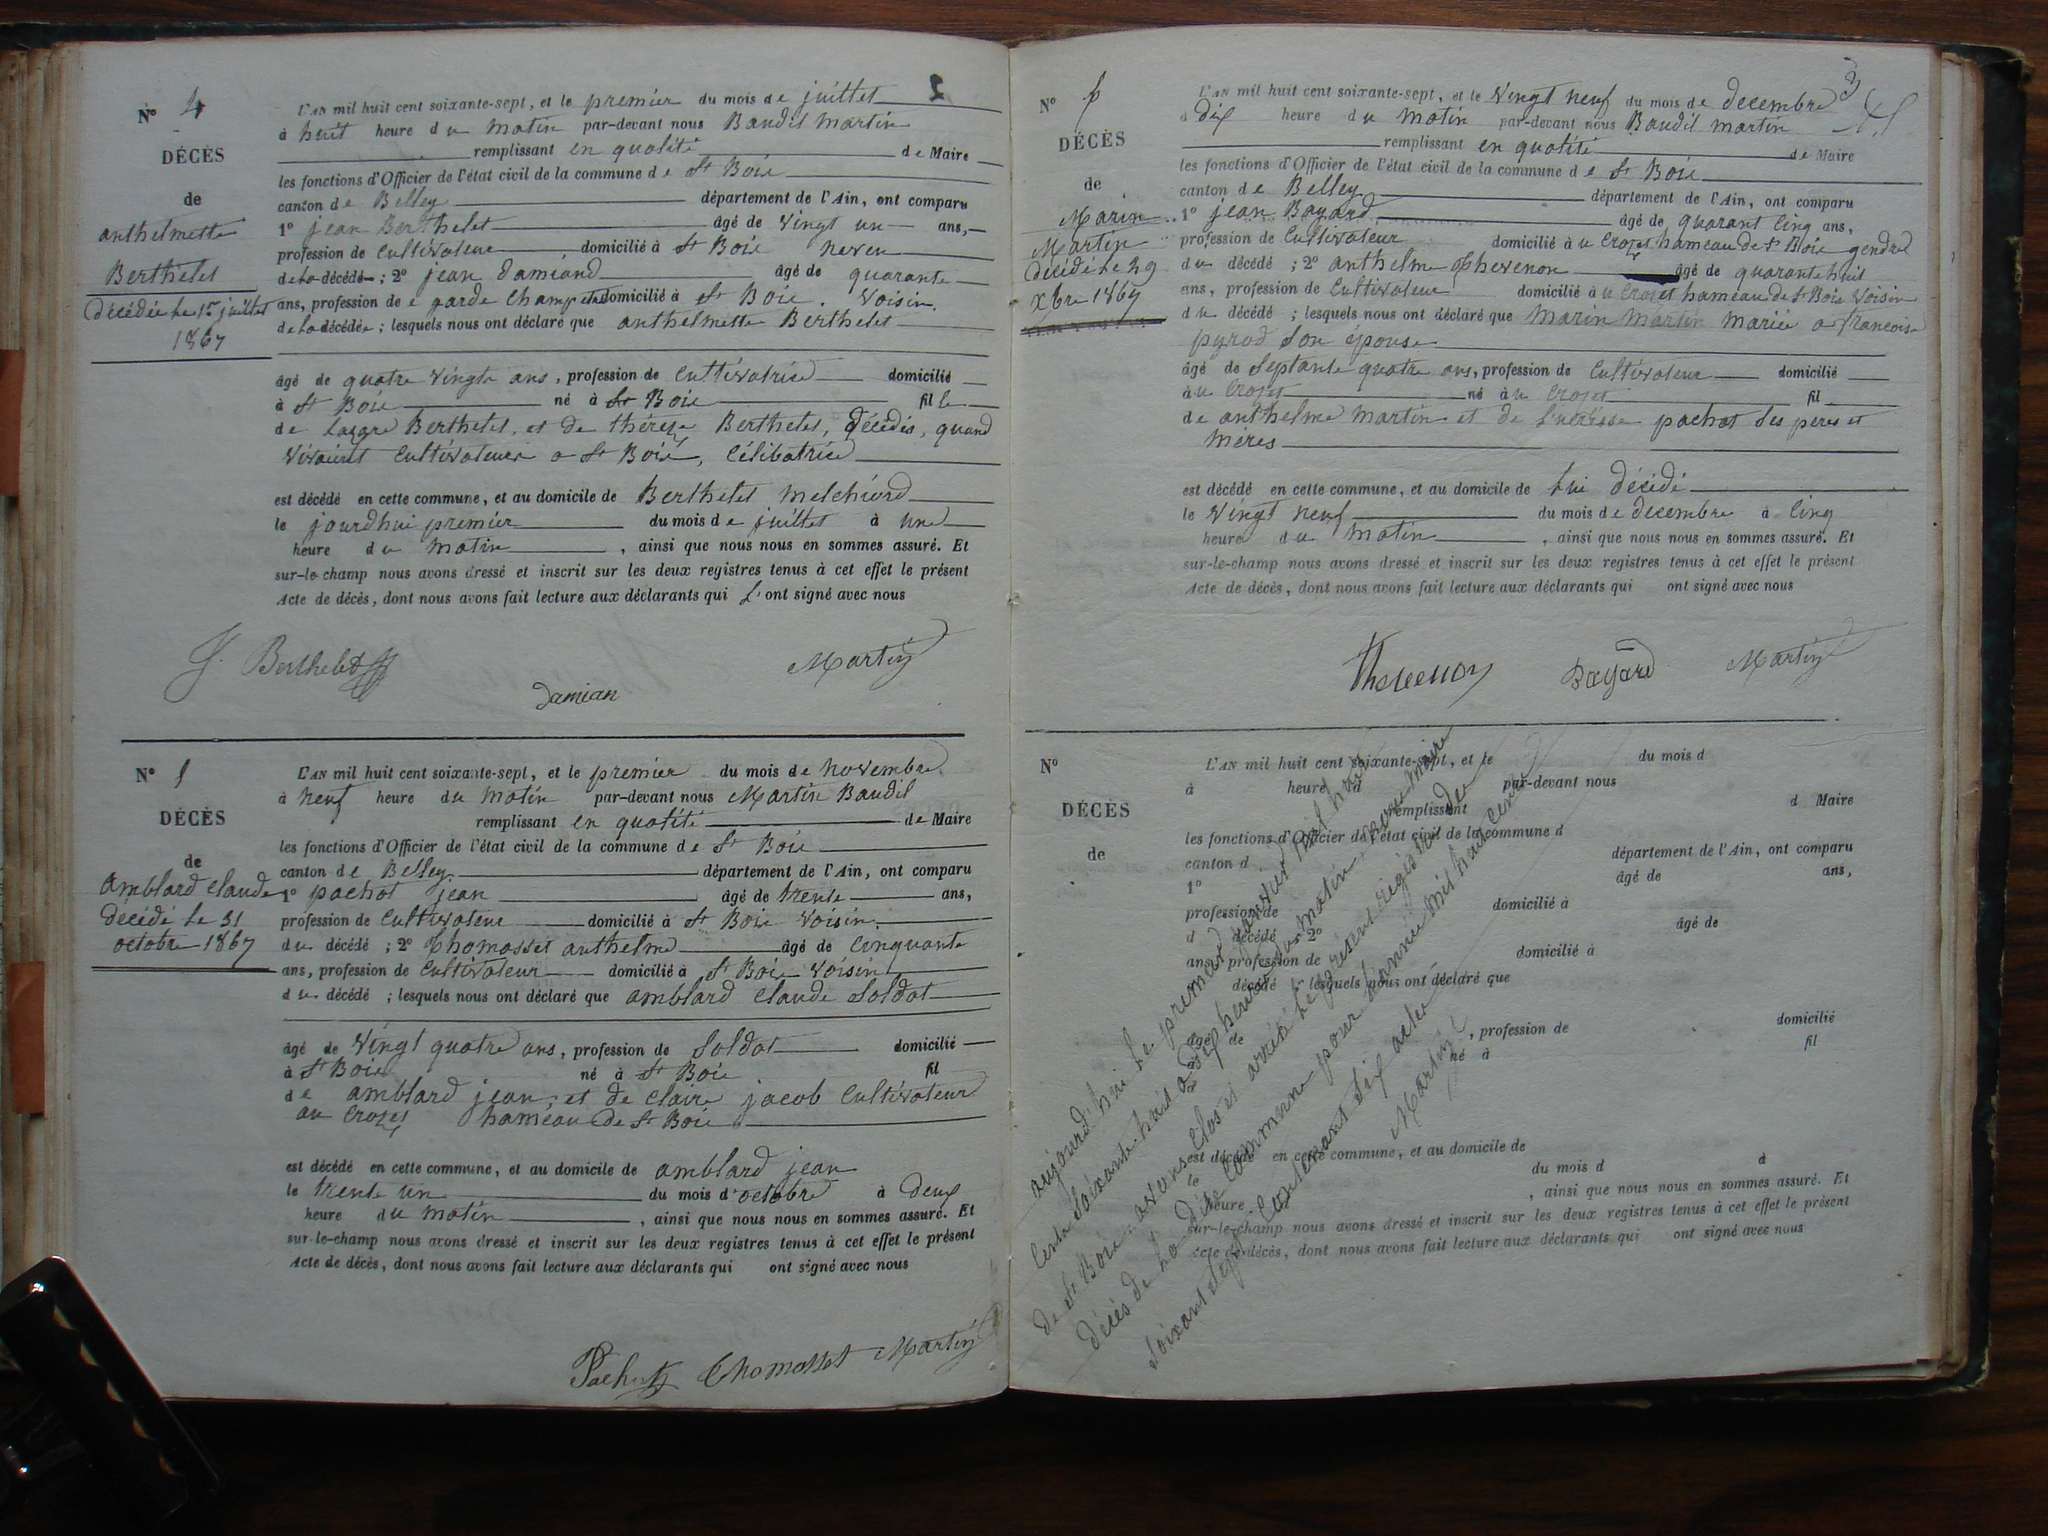 2
N° 4
DÉCÈS
de
anthelmette
Berthelet
décédée le 1er juillet
1867
L'AN mil huit cent soixante-sept, et le premier du mois de juillet
à huit heure du matin par-devant nous Baudil martin
remplissant en qualité de Maire
les fonctions d'Officier de l'état civil de la commune de St Boie
canton de Belley département de l'Ain, ont comparu
1° jean Berthelet âgé de vingt un ans,
profession de Cultivateur domicilié à St Boie neveu
de la décédé ; 2° jean damiand âgé de quarante
ans, profession de garde Champetre domicilié à St Boie . Voisin
de la décédée ; lesquels nous ont déclaré que anthelmette Berthelet
âgé de quatre vingts ans, profession de Cultivatrice domicilié
à St Boie né à St Boie fille
de Berthelet, et de thérèze Berthelet, décédés, quand
vivaient Cultivateurs a St Boie, Célibatrice
est décédé en cette commune, et au domicile de Berthelet melchiord
le jourdhui premier du mois de juillet à une
heure du matin , ainsi que nous nous en sommes assuré. Et
sur-le-champ nous avons dressé et inscrit sur les deux registres tenus à cet effet le présent
Acte de décès, dont nous avons fait lecture aux déclarants qui l' ont signé avec nous
J. Berthelet
damian
Martin
N° 5
DÉCÈS
de
amblard Claude
décédé le 31
octobre 1867
L'AN mil huit cent soixante-sept, et le premier du mois de novembre
à neuf heure du matin par-devant nous Martin Baudil
remplissant en qualité de Maire
les fonctions d'Officier de l'état civil de la commune de St Boie
canton de Belley département de l'Ain, ont comparu
1° pachot jean âgé de trente ans,
profession de Cultivateur domicilié à St Boie Voisin
du décédé ; 2° thomasset anthelme âgé de Cinquante
ans, profession de Cultivateur domicilié à St Boie Voisin
du décédé ; lesquels nous ont déclaré que amblard Claude Soldat
âgé de Vingt quatre ans, profession de Soldat domicilié
à St Boie né à St Boie fil
de amblard jean, et de Claire jacob Cultivateur
au Crozet hameau de St Boie
est décédé en cette commune, et au domicile de amblard jean
le trente un du mois d'octobre à deux
heure du matin , ainsi que nous nous en sommes assuré. Et
sur-le-champ nous avons dressé et inscrit sur les deux registres tenus à cet effet le présent
Acte de décès, dont nous avons fait lecture aux déclarants qui ont signé avec nous
Pachot Thomasset Martin
3
N° 6
DÉCÈS
de
Marin
Martin
décédé le 29
xbre 1867
L'AN mil huit cent soixante-sept, et le Vingt neuf du mois de decembre
à dix heure du matin par-devant nous Baudil martin
remplissant en qualité de Maire
les fonctions d'Officier de l'état civil de la commune de St Boie
canton de Belley département de l'Ain, ont comparu
1° jean Bayard âgé de quarant Cinq ans,
profession de Cultivateur domicilié à u Crozet hameau de St Boie gendre
du décédé ; 2° anthelme thevenon âgé de quarante huit
ans, profession de Cultivateur domicilié à u Crozet hameau de St Boie Voisin
du décédé ; lesquels nous ont déclaré que Marin Martin mariée a francoise
pyrod Son épouse
âgé de Septante quatre ans, profession de Cultivateur domicilié
à u Crozet né à u Crozet fil
de anthelme Martin et de pachot Ses peres et
meres
est décédé en cette commune, et au domicile de lui décédé
le Vingt neuf du mois de decembre à Cinq
heure du matin , ainsi que nous nous en sommes assuré. Et
sur-le-champ nous avons dressé et inscrit sur les deux registres tenus à cet effet le présent
Acte de décès, dont nous avons fait lecture aux déclarants qui ont signé avec nous
Thevenon Bayard Martin
N°
DÉCÈS
de
L'AN mil huit cent soixante-sept, et le du mois d
à heure d par-devant nous
remplissant d Maire
les fonctions d'Officier de l'état civil de la commune d
canton d département de l'Ain, ont comparu
1° âgé de ans,
profession de domicilié à
d décédé 2° âgé de
ans, profession de domicilié à
décédé lesquels nous ont déclaré que
âgé de , profession de domicilié
à né à fil
est décédé en cette commune, et au domicile de
le du mois d à
heure , ainsi que nous nous en sommes assuré. Et
sur-le-champ nous avons dressé et inscrit sur les deux registres tenus à cet effet le présent
Acte de décès, dont nous avons fait lecture aux déclarants qui ont signé avec nous
aujourd'hui le premier janvier mil huit
Cents Soixante huit a Sept heures du matin, nous maire
de St Boie avons Clos et arrêté le présent régistre de
décès de la dite Commune pour l'année mil huit Cents
Soixant Sept Contenant Six actes
Martin